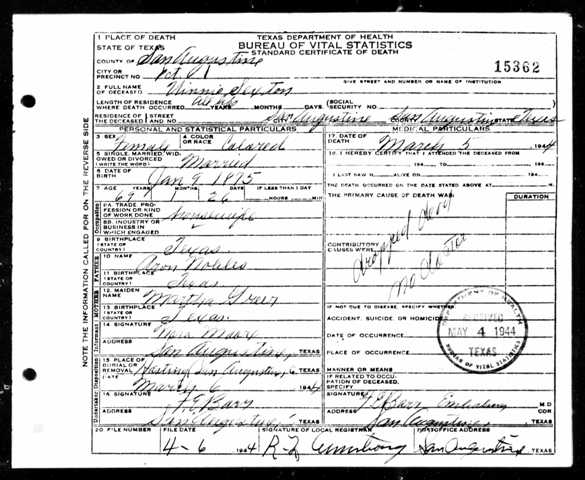 TEXAS DEPARTMENT OF HEALTH
BUREAU OF VITAL STATISTICS
STANDARD CERTIFICATE OF DEATH
15362
1 PLACE OF DEATH
STATE OF TEXAS
COUNTY OF San Augustine
CITY OR PRECINCT NO. Pct 1
GIVE STREET AND NUMBER OR NAME OF INSTITUTION
2 FULL NAME OF DECEASED Minnie Sexton
LENGTH OF RESIDENCE WHERE DEATH OCCURRED All life YEARS MONTHS DAYS (SOCIAL SECURITY NO.
RESIDENCE OF THE DECEASED STREET AND NO. CITY San Augustine COUNTY San Augustine STATE Texas
PERSONAL AND STATISTICAL PARTICULARS
3 SEX Female
4 COLOR OR RACE Colored
5 SINGLE, MARRIED, WIDOWED OR DIVORCED (WRITE THE WORD) Married
6 DATE OF BIRTH Jan 9 1875
7 AGE YEARS MONTHS DAYS IF LESS THAN 1 DAY
69 1 26 HOURS MIN
8A. TRADE, PROFESSION OR KIND OF WORK DONE Housewife
8B. INDUSTRY OR BUSINESS IN WHICH ENGAGED
9 BIRTHPLACE (STATE OR COUNTRY) Texas
10 NAME
11 BIRTHPLACE (STATE OR COUNTRY) Texas
12 MAIDEN NAME Martha
13 BIRTHPLACE (STATE OR COUNTRY) Texas
14 SIGNATURE Moore
ADDRESS San Augustine, TEXAS
15 PLACE OF BURIAL OR REMOVAL San Augustine TEXAS
DATE March 6 1944
16 SIGNATURE F. E. Barr
ADDRESS San Augustine TEXAS
MEDICAL PARTICULARS
17 DATE OF DEATH March 5 1944
18 I HEREBY CERTIFY THAT I ATTENDED THE DECEASED FROM
194 TO 194
I LAST SAW H ALIVE ON 194
THE DEATH OCCURRED ON THE DATE STATED ABOVE AT M.
THE PRIMARY CAUSE OF DEATH WAS:
DURATION
Dropped Dead
No Doctor
CONTRIBUTORY CAUSES WERE
IF NOT DUE TO DISEASE, SPECIFY WHETHER
ACCIDENT, SUICIDE OR HOMICIDE
DATE OF OCCURRENCE
PLACE OF OCCURRENCE
MANNER OR MEANS
IF RELATED TO OCCUPATION OF DECEASED, SPECIFY
SIGNATURE F. E. Barr M.D
ADDRESS San Augustine TEXAS
RECEIVED
MAY 4 1944
TEXAS
BUREAU OF VITAL STATISTICS
20 FILE NUMBER
FILE DATE 4-6 1944
SIGNATURE OF LOCAL REGISTRAR R. L. Armstrong
POSTOFFICE ADDRESS San Augustine
NOTE THE INFORMATION CALLED FOR ON THE REVERSE SIDE
Occupation
FATHER
MOTHER
Informant